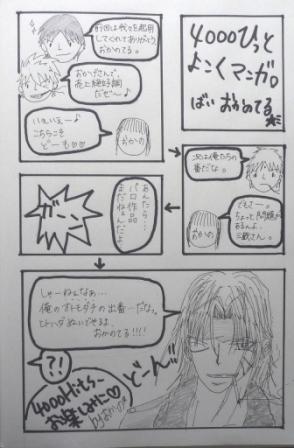 4000ひっと
よこくマンガ。
ばい おかのてる
前回は我々を起用
してくれてありがとう、
おかのてる。
おかげさんで、
売上絶好調
だぜ〜♪
いえいえー♪
こちらこそ
どーも♡♡
おかの
次は俺たちの
番だな。
でもさー。
ちょっと問題が
あるんよ、
三蔵さん。
おかの
あんたら…
パロ作品
まだねぇんだよ
ガーン
しゃーねぇなぁ…
俺のオトモダチの出番…だな。
ひとハダぬいでやるよ、
おかのてる!!!!
どーん!!
?!
4000Hits〜
お楽しみに♡